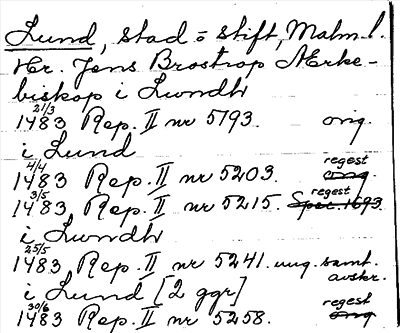 Lund, stad o stift, Malm. l.
Hr. Jens Brostrop Ærke-
biskop i Lundh
21/3
1483 Rep. II nr 5193. orig.
i Lund
4/4 regest
1483 Rep. II nr 5203. orig.
3/5 regest
1483 Rep. II nr 5215. Spec. 1693
i Lundh
25/5
1483 Rep. II nr 5241. ung. samt.
avskr.
i Lund [2 ggr]
30/6 regest
1483 Rep. II nr 5258. orig